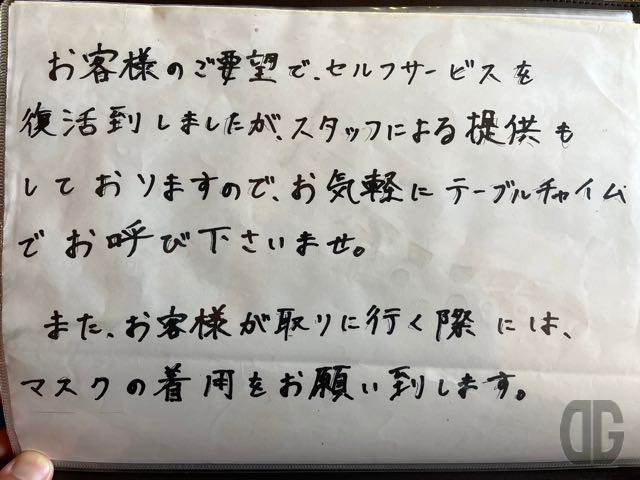 お客様のご要望で、セルフサービスを
復活到しましたが、スタッフによる提供も
しておりますので、お気軽にテーブルチャイム
でお呼び下さいませ。
また、お客様が取りに行く際には、
マスクの着用をお願い到します。
DG